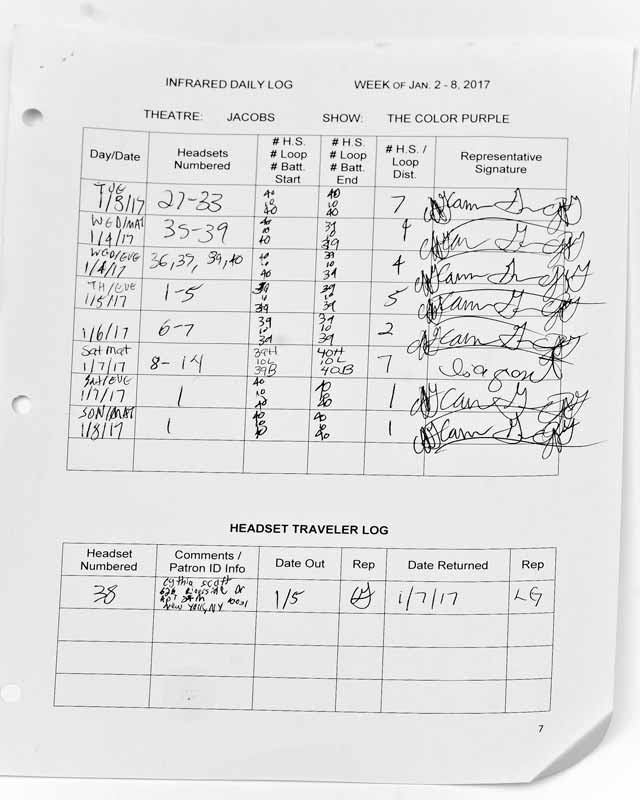 INFRARED DAILY LOG WEEK OF JAN. 2 - 8, 2017
THEATRE: JACOBS SHOW: THE COLOR PURPLE
Day/Date Headsets Numbered # H.S. # Loop # Batt. Start # H.S. # Loop # Batt. End # H.S. / Loop Dist. Representative Signature
TUE 1/3/17 27-33 40 10 40 40 10 40 7
WED/MAT 1/4/17 35-39 40 10 40 39 10 39 4
WED/EVE 1/4/17 36,37, 39,40 40 10 40 39 10 39 4
TH/EVE 1/5/17 1-5 39 10 39 39 10 39 5
1/6/17 6-7 39 10 39 39 10 39 2
Sat mat 1/7/17 8-14 39H 10L 39B 40H 10L 40B 7
SAT/EVE 1/7/17 1 40 10 40 40 10 40 1
SUN/MAT 1/8/17 1 40 10 40 40 10 40 1
HEADSET TRAVELER LOG
Headset Numbered Comments / Patron ID Info Date Out Rep Date Returned Rep
38 Scott New York, NY 1/5 1/7/17 LG
7